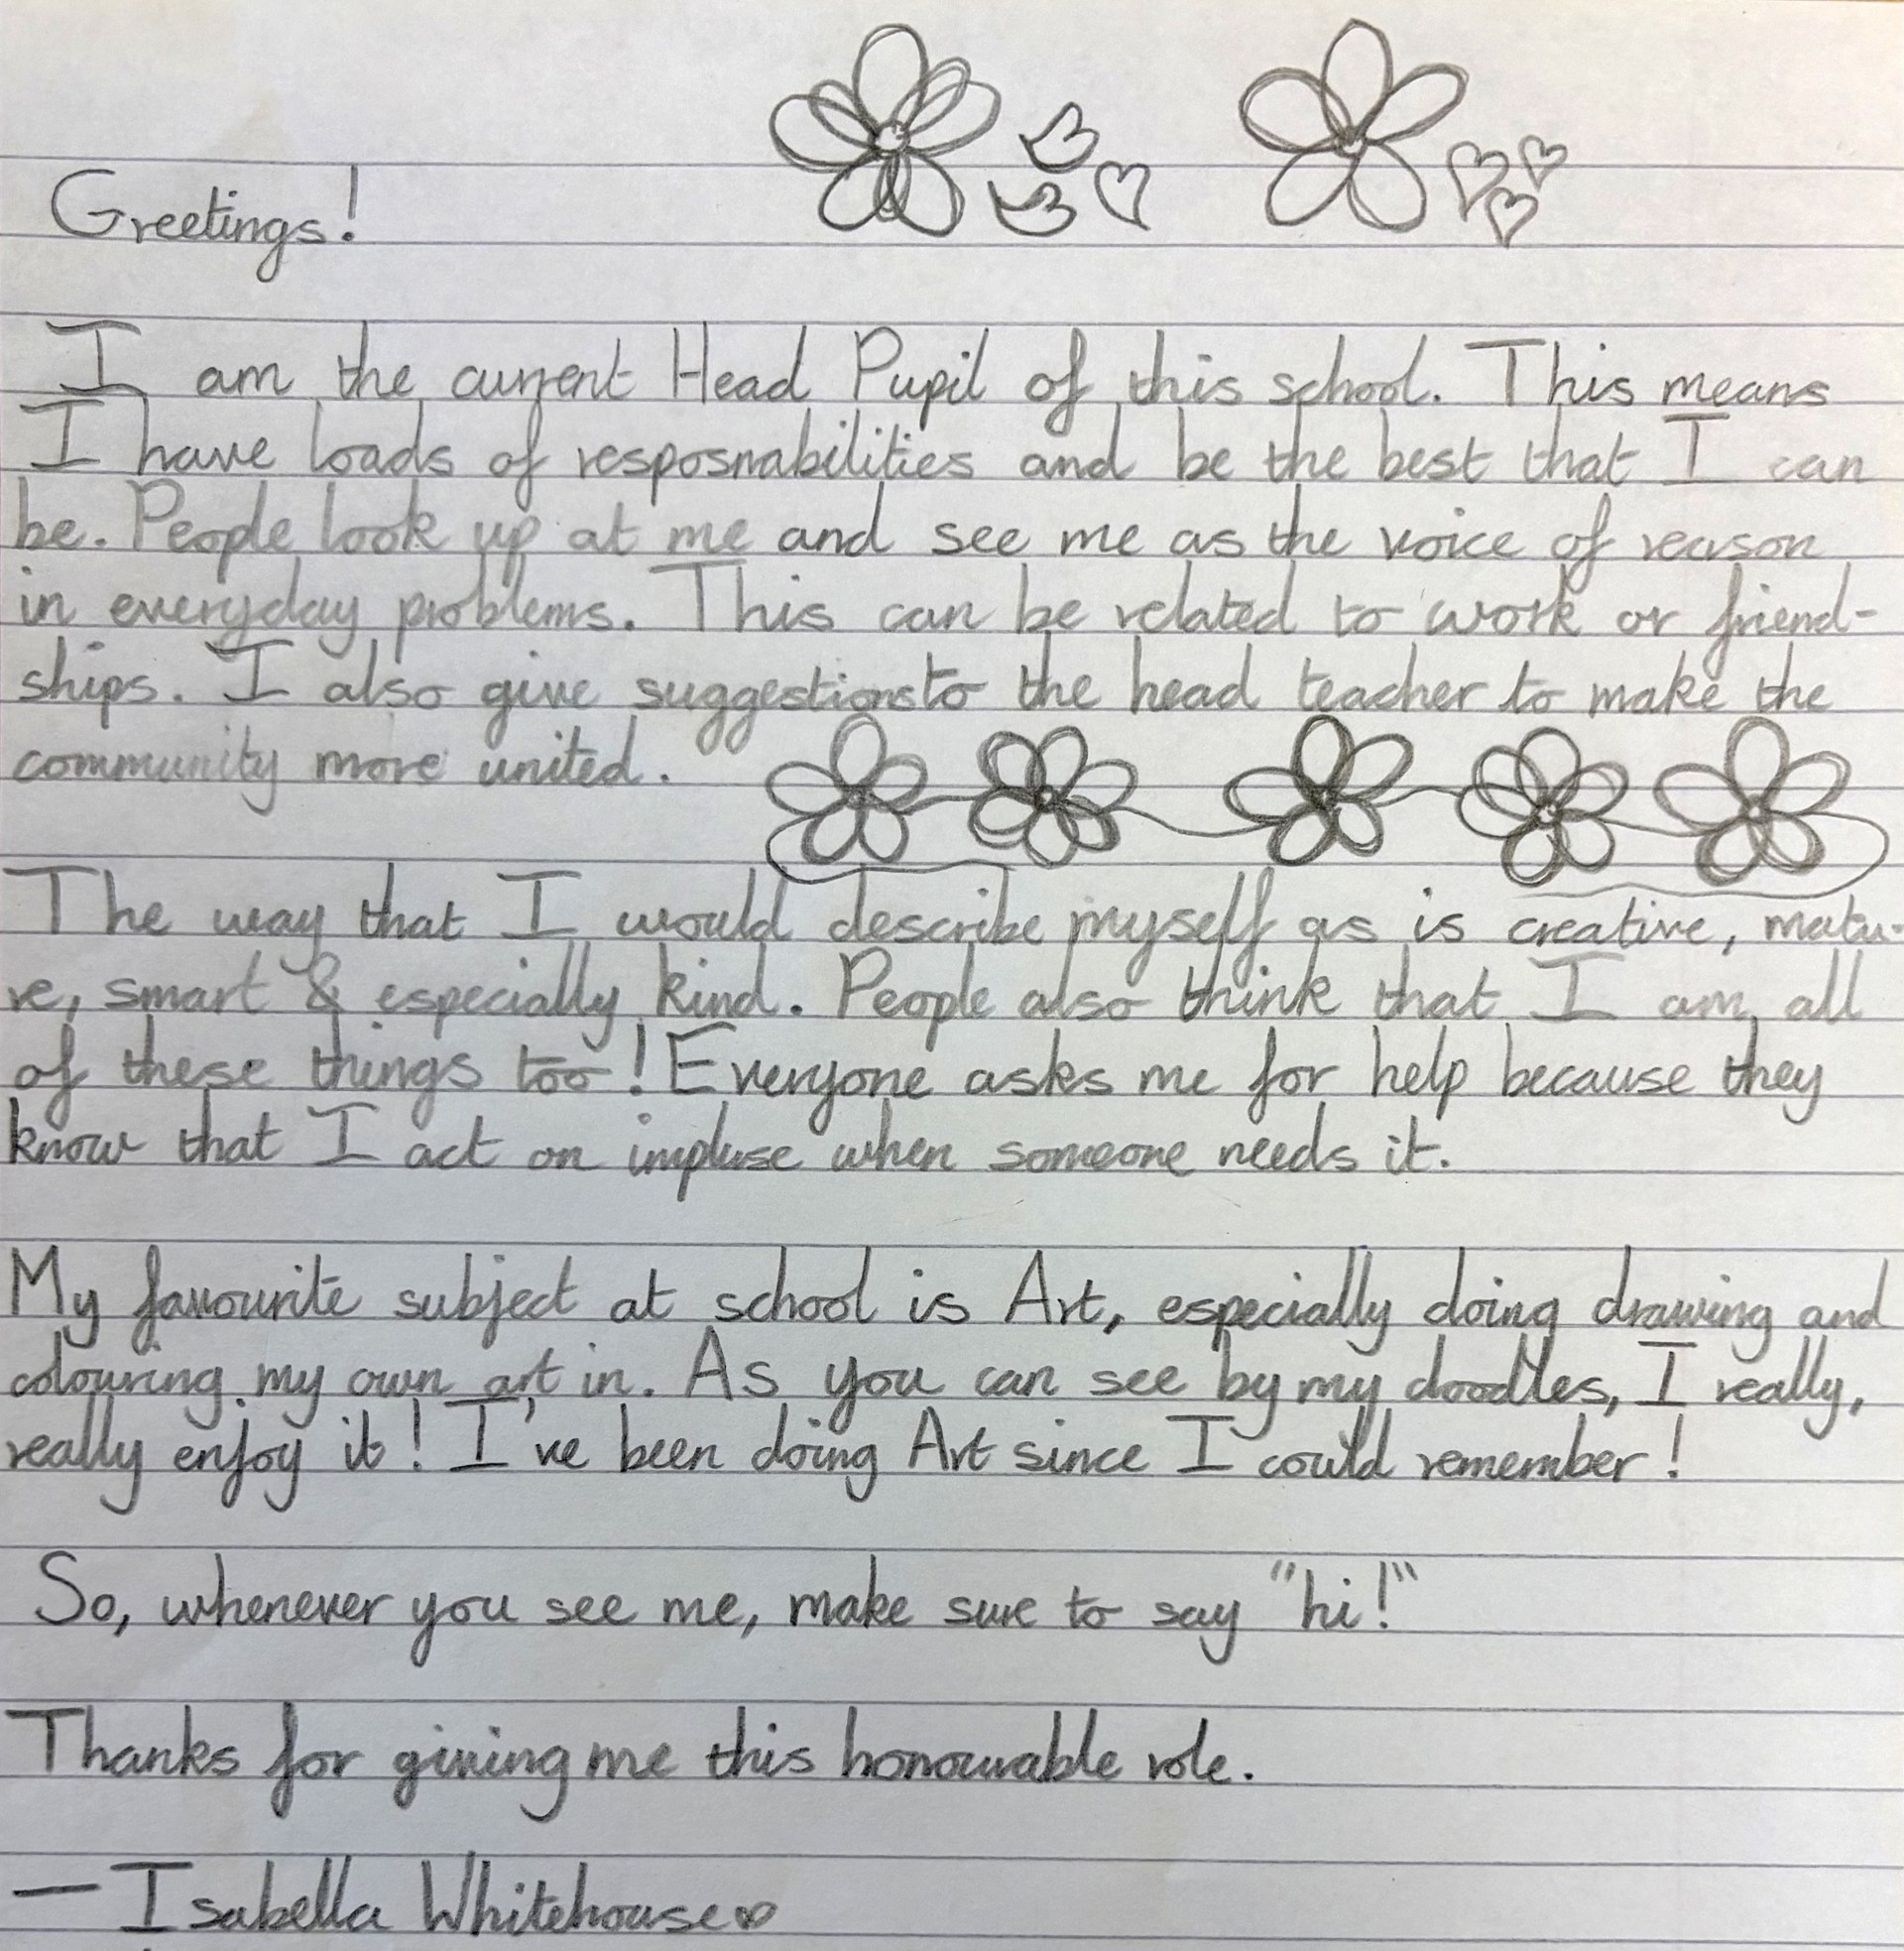 Greetings!
I am the current Head Pupil of this school. This means
I have loads of resposnabilities and be the best that I can
be. People look up at me and see me as the voice of reason
in everyday problems. This can be related to work or friend-
ships. I also give suggestions to the head teacher to make the
community more united.
The way that I would describe myself as is creative, matu-
re, smart & especially kind. People also think that I am all
of these things too! Everyone asks me for help because they
know that I act on impluse when someone needs it.
My favourite subject at school is Art, especially doing drawing and
colouring my own art in. As you can see by my doodles, I really,
really enjoy it! I've been doing Art since I could remember!
So, whenever you see me, make sure to say "hi!"
Thanks for giving me this honourable role.
— Isabella Whitehouse♡